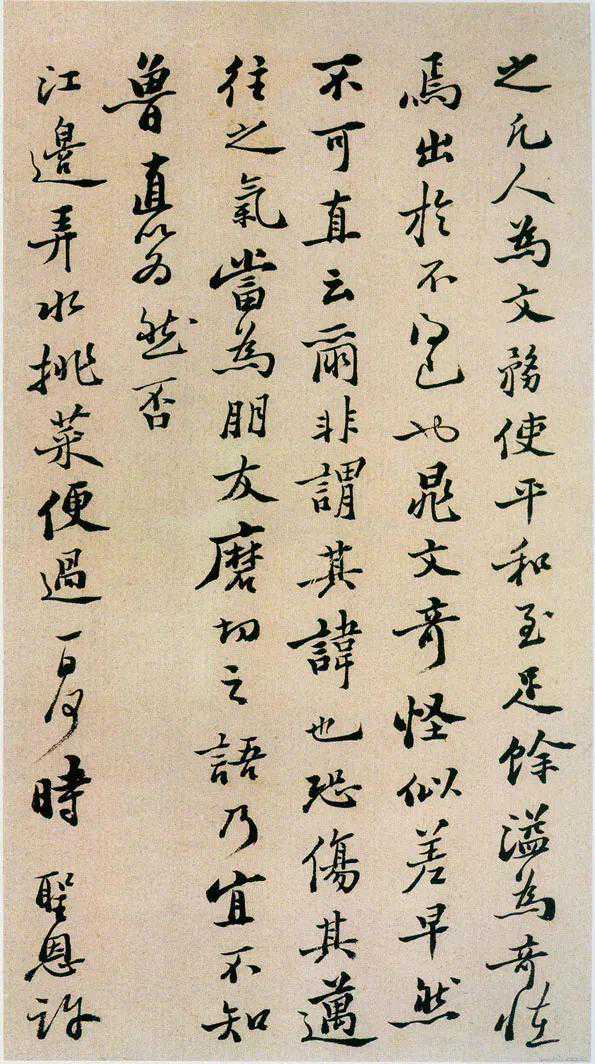 之凡人為文務使平和至足餘溢為奇恠
焉出於不得已也晁文奇怪似差早然
不可直云爾非謂其諱也恐傷其邁
往之氣當為朋友磨切之語乃宜不知
魯直以為然否
江邊弄水挑菜便過一日時聖恩許